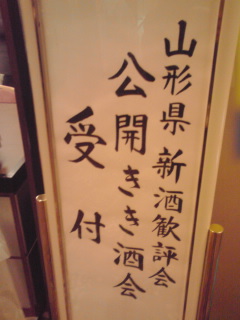 山形県 新酒歓評会
公開きき酒会
受付